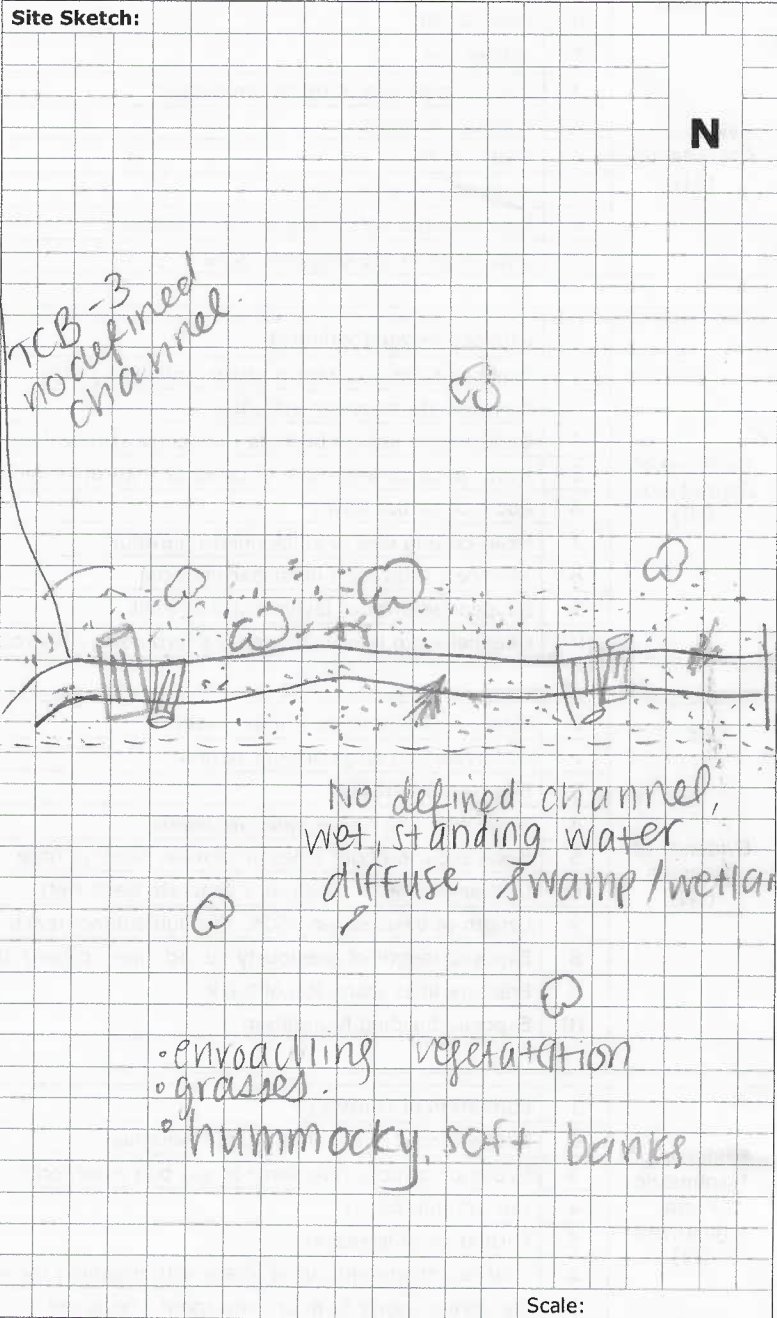 Site Sketch:
N
TCB-3
no defined
channel.
No defined channel,
wet, standing water
diffuse swamp/wetlan
• envroachling vegetatation
• grasses.
• hummocky, soft banks
Scale: